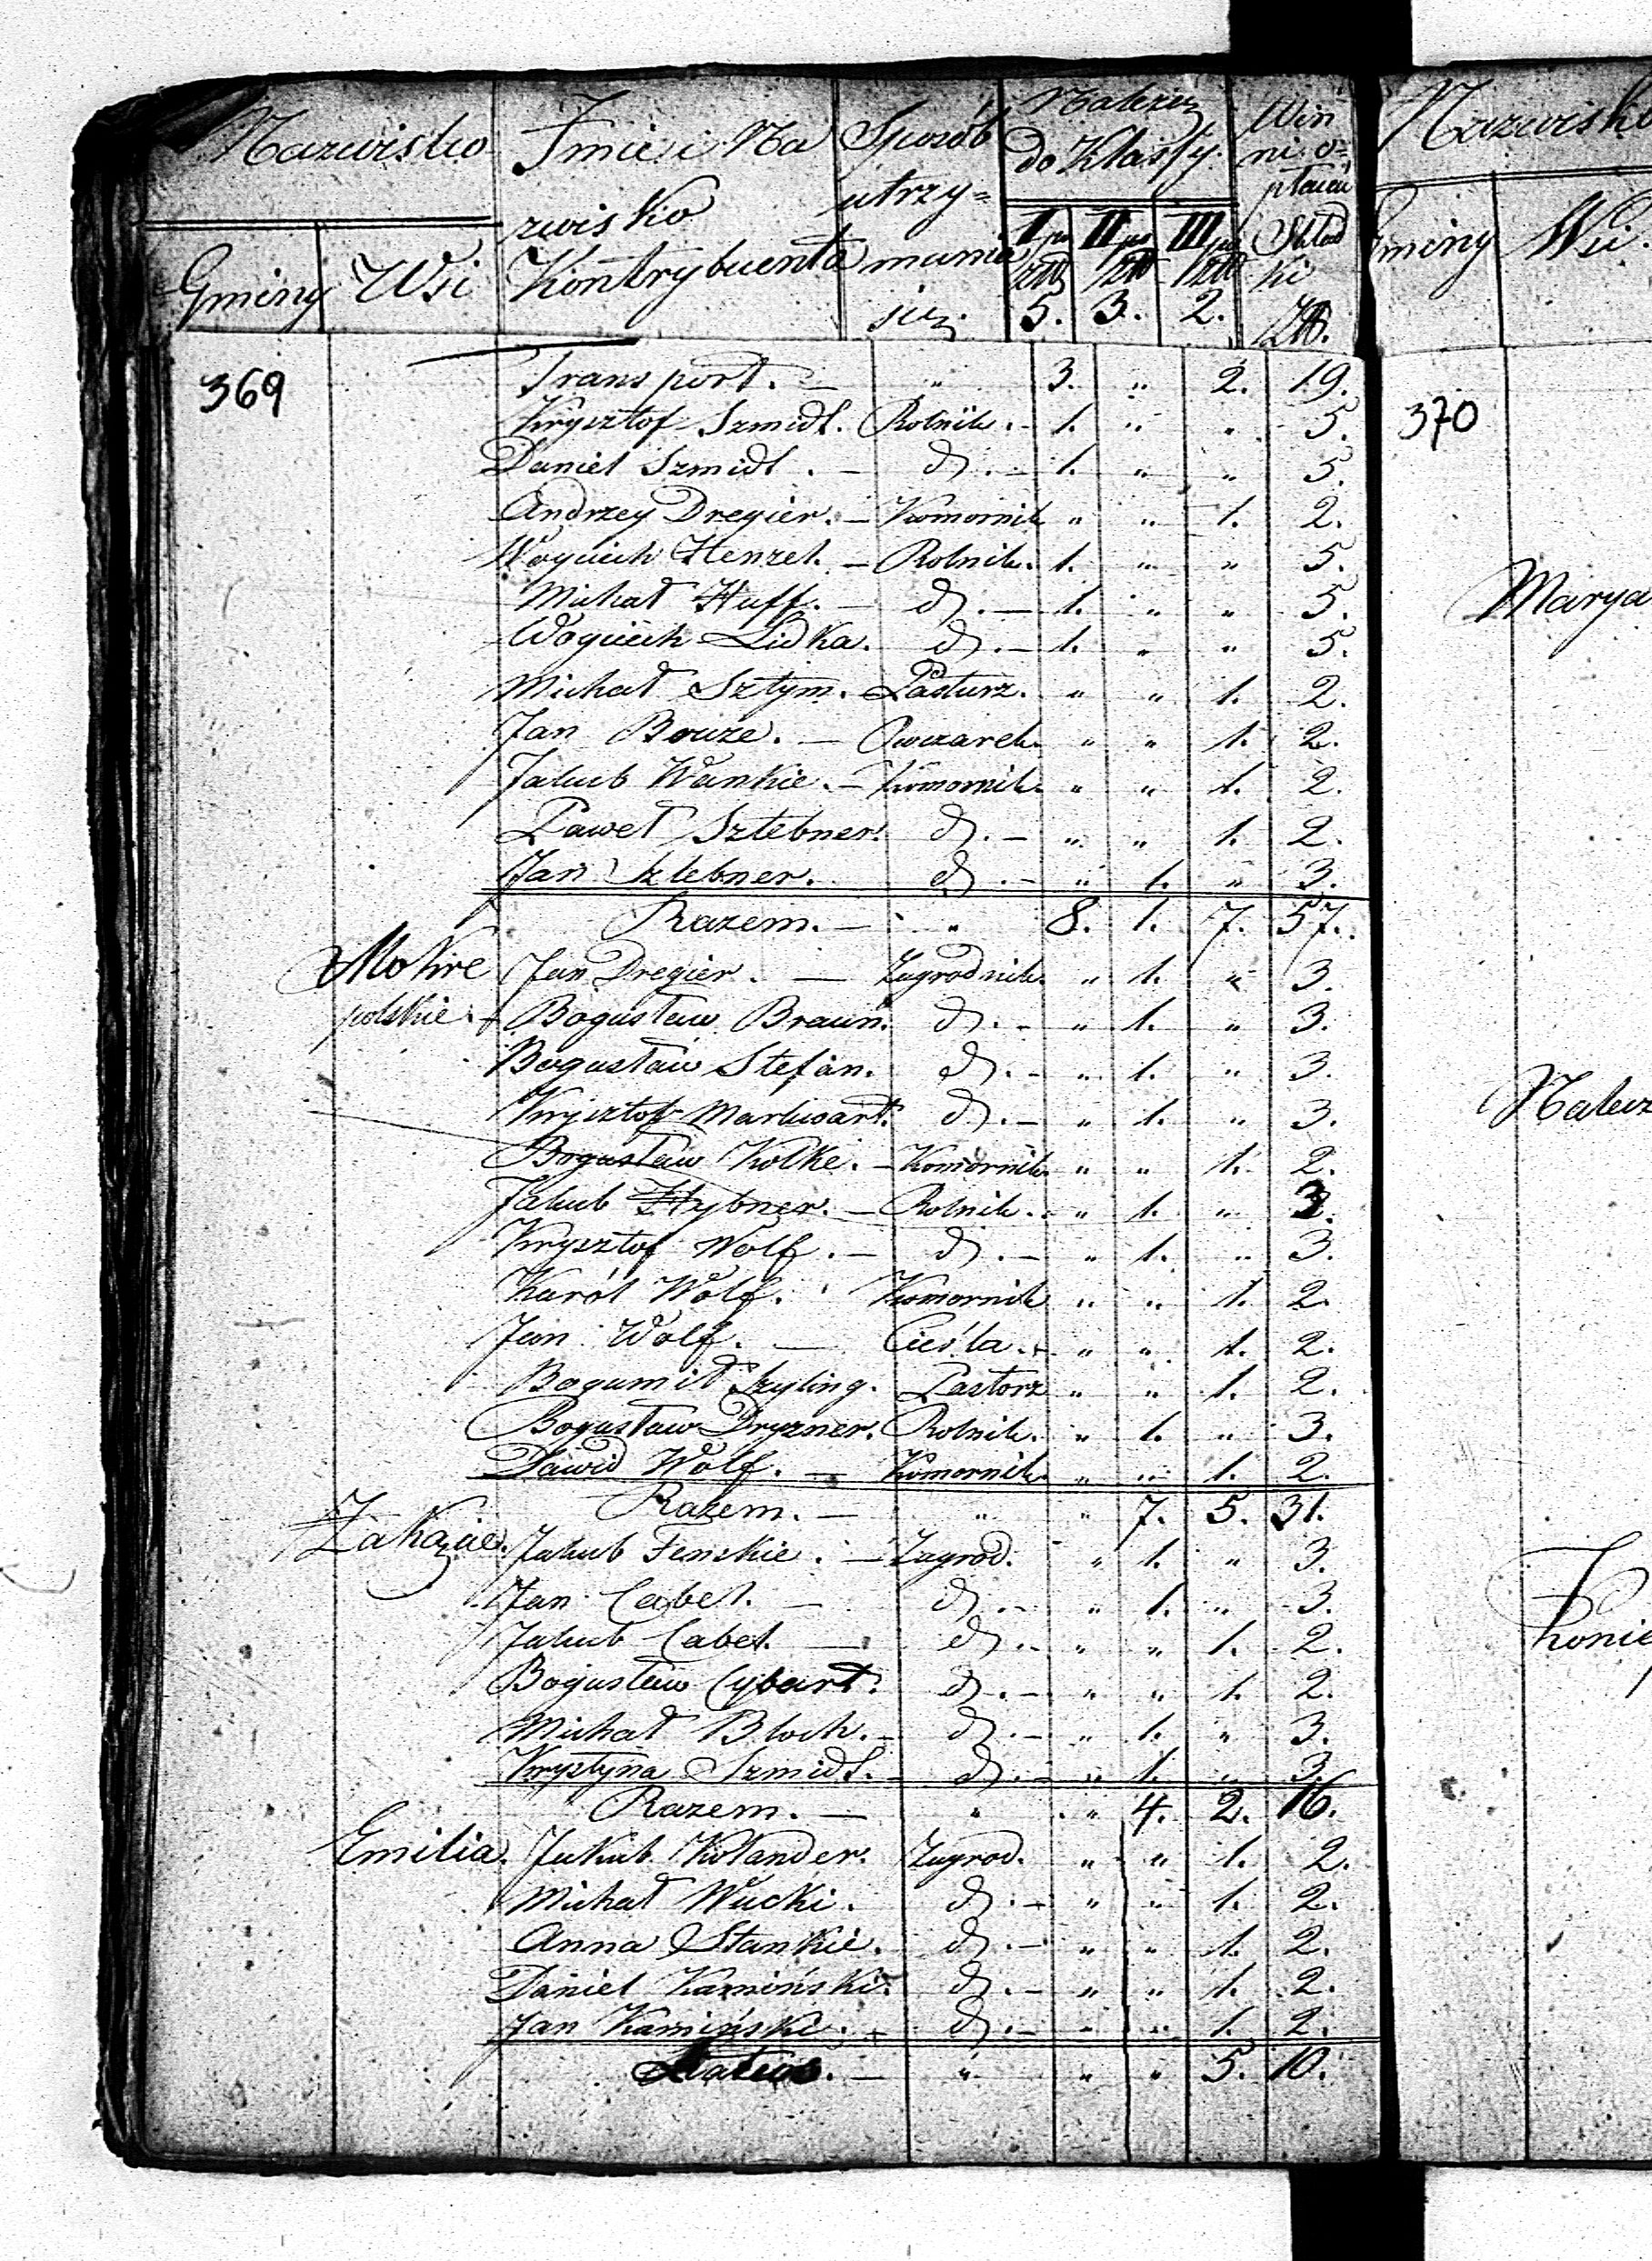 Nazwisko | Imie i Na | Sposób | Należy | Win | Nazwisko
zwisko | utrzy= | do Klassy | ni o=
płacić
Gminy | Wsi | Kontrybuenta | mania | I po | II po | III po | Skład | Gminy | Wsi
się | Złł 5. | Złł 3. | Złł 2. | ki Złł.
369 | Transport. — | " | 3. | " | 2. | 19. | 370
Krysztof Szmidt. | Rolnik. | 1. | " | " | 5.
Daniel Szmidt. — | d. — | 1. | " | " | 5.
Andrzey Dregier. — | Komornik | " | " | 1. | 2.
Woyciech Henzel. — | Rolnik. | 1. | " | " | 5.
Michał Huff. — | d. — | 1. | " | " | 5. | Marya
Woyciech Lidka. | d. — | 1. | " | " | 5.
Michał Sztym. | Pasturz. | " | " | 1. | 2.
Jan Bouze. — | Owczarek. | " | " | 1. | 2.
Jakub Wankie. — | Komornik. | " | " | 1. | 2.
Paweł Sztebner. | d. — | " | " | 1. | 2.
Jan Sztebner. | d. — | " | 1. | " | 3.
Razem. — | " | 8. | 1. | 7. | 57.
Mokre | Jan Dregier. — | Zagrodnik. | " | 1. | " | 3.
polskie. | Bogusław Braun. | d. — | " | 1. | " | 3.
Bogusław Stefan. | d. — | " | 1. | " | 3.
Krysztof Markwart. | d. — | " | 1. | " | 3.
Bogusław Kolke. — | Komornik. | " | " | 1. | 2.
Jakub Hybner. — | Rolnik. | " | 1. | " | 3.
Krysztof Wolf. — | d. — | " | 1. | " | 3.
Karól Wolf. | Komornik | " | " | 1. | 2.
Jan Wolf. — | Cieśla. | " | " | 1. | 2.
Bogumił Szyling. | Pastorz | " | " | 1. | 2.
Bogusław Dryzner. | Rolnik. | " | 1. | " | 3.
Dawid Wolf. — | Komornik. | " | " | 1. | 2.
Razem. — | " | " | 7. | 5. | 31.
Zakącie. | Jakub Fenskie. — | Zagrod. | " | 1. | " | 3.
Jan Cabel. — | d. — | " | 1. | " | 3.
Jakub Cabel. — | d. — | " | " | 1. | 2.
Bogusław Cybart. | d. — | " | " | 1. | 2.
Michał Bloch. — | d. — | " | 1. | " | 3.
Krystyna Szmidt. — | d. — | " | 1. | " | 3.
Razem. — | " | " | 4. | 2. | 16.
Emilia. | Jakub Kolander. | Zagrod. | " | " | 1. | 2.
Michał Wucki. | d. — | " | " | 1. | 2.
Anna Stankie. | d. — | " | " | 1. | 2.
Daniel Kamiński. | d. — | " | " | 1. | 2.
Jan Kamiński. — | d. — | " | " | 1. | 2.
" | " | " | 5. | 10.